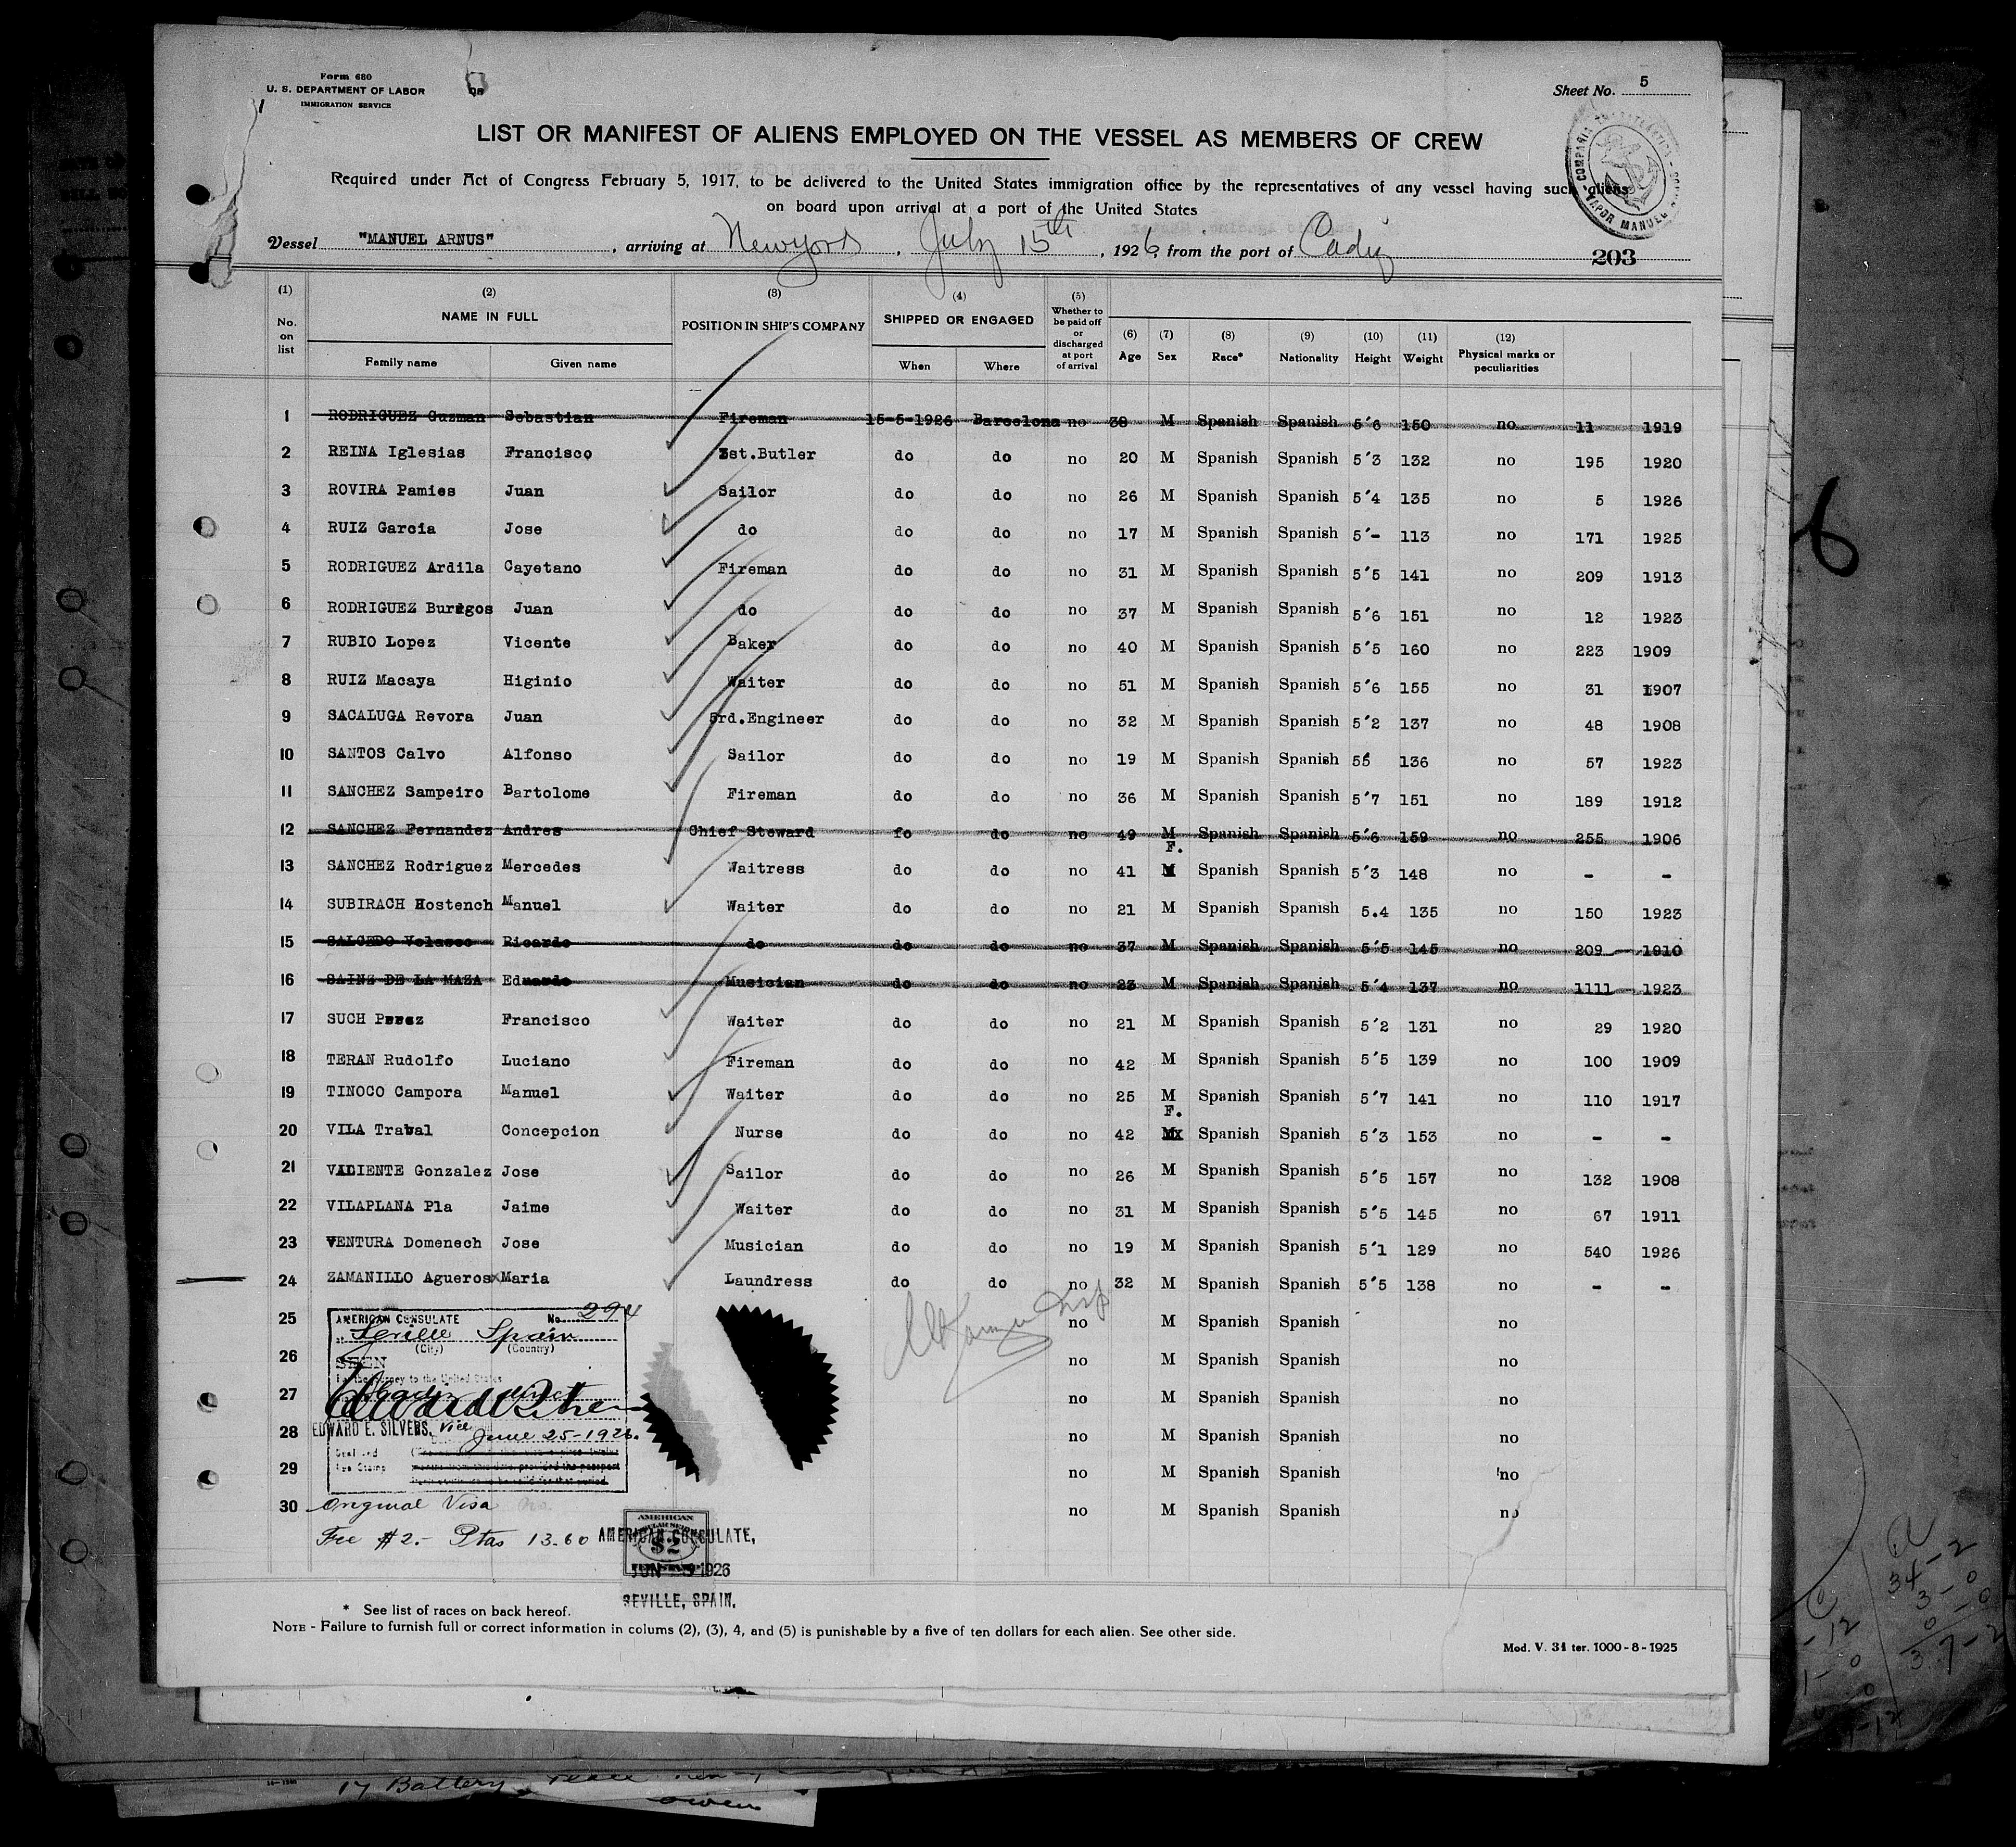 Form 680
U. S. DEPARTMENT OF LABOR
IMMIGRATION SERVICE
Sheet No. 5
LIST OR MANIFEST OF ALIENS EMPLOYED ON THE VESSEL AS MEMBERS OF CREW
Required under Act of Congress February 5, 1917, to be delivered to the United States immigration office by the representatives of any vessel having such aliens
on board upon arrival at a port of the United States
Vessel "MANUEL ARNUS", arriving at New York, July 15th, 1926, from the port of Cadiz
203
COMPAÑIA TRASATLANTICA
VAPOR MANUEL
(1) (2) (3) (4) (5) (6) (7) (8) (9) (10) (11) (12)
No. on list NAME IN FULL Family name Given name POSITION IN SHIP'S COMPANY SHIPPED OR ENGAGED When Where Whether to be paid off or discharged at port of arrival Age Sex Race* Nationality Height Weight Physical marks or peculiarities
1 RODRIGUEZ Guzman Sebastian Fireman 15-5-1926 Barcelona no 38 M Spanish Spanish 5'6 150 no 11 1919
2 REINA Iglesias Francisco st.Butler do do no 20 M Spanish Spanish 5'3 132 no 195 1920
3 ROVIRA Pamies Juan Sailor do do no 26 M Spanish Spanish 5'4 135 no 5 1926
4 RUIZ Garcia Jose do do do no 17 M Spanish Spanish 5'- 113 no 171 1925
5 RODRIGUEZ Ardila Cayetano Fireman do do no 31 M Spanish Spanish 5'5 141 no 209 1913
6 RODRIGUEZ Burgos Juan do do do no 37 M Spanish Spanish 5'6 151 no 12 1923
7 RUBIO Lopez Vicente Baker do do no 40 M Spanish Spanish 5'5 160 no 223 1909
8 RUIZ Macaya Higinio Waiter do do no 51 M Spanish Spanish 5'6 155 no 31 1907
9 SACALUGA Revora Juan 3rd.Engineer do do no 32 M Spanish Spanish 5'2 137 no 48 1908
10 SANTOS Calvo Alfonso Sailor do do no 19 M Spanish Spanish 55 136 no 57 1923
11 SANCHEZ Sampeiro Bartolome Fireman do do no 36 M Spanish Spanish 5'7 151 no 189 1912
12 SANCHEZ Fernandez Andres Chief Steward fo do no 49 M Spanish Spanish 5'6 159 no 255 1906
13 SANCHEZ Rodriguez Mercedes Waitress do do no 41 F. Spanish Spanish 5'3 148 no - -
14 SUBIRACH Hostench Manuel Waiter do do no 21 M Spanish Spanish 5.4 135 no 150 1923
15 SALCEDO Velasco Ricardo do do do no 37 M Spanish Spanish 5'5 145 no 209 1910
16 SAINZ DE LA MAZA Eduardo Musician do do no 23 M Spanish Spanish 5'4 137 no 1111 1923
17 SUCH Perez Francisco Waiter do do no 21 M Spanish Spanish 5'2 131 no 29 1920
18 TERAN Rudolfo Luciano Fireman do do no 42 M Spanish Spanish 5'5 139 no 100 1909
19 TINOCO Campora Manuel Waiter do do no 25 M Spanish Spanish 5'7 141 no 110 1917
20 VILA Trabal Concepcion Nurse do do no 42 F. Spanish Spanish 5'3 153 no - -
21 VALIENTE Gonzalez Jose Sailor do do no 26 M Spanish Spanish 5'5 157 no 132 1908
22 VILAPLANA Pla Jaime Waiter do do no 31 M Spanish Spanish 5'5 145 no 67 1911
23 VENTURA Domenech Jose Musician do do no 19 M Spanish Spanish 5'1 129 no 540 1926
24 ZAMANILLO Agueros x Maria Laundress do do no 32 M Spanish Spanish 5'5 138 no - -
25 no M Spanish Spanish no
26 no M Spanish Spanish no
27 no M Spanish Spanish no
28 no M Spanish Spanish no
29 no M Spanish Spanish no
30 no M Spanish Spanish no
AMERICAN CONSULATE No. 294
at Seville Spain
(City) (Country)
SEEN
For the journey to the United States
EDWARD E. SILVERS, Vice
June 25-1926.
Seal and
Fee Stamp
Original Visa no.
Fee $2.- Ptas 13.60
AMERICAN
$2
AMERICAN CONSULATE,
JUN 1926
SEVILLE, SPAIN.
* See list of races on back hereof.
NOTE - Failure to furnish full or correct information in colums (2), (3), 4, and (5) is punishable by a five of ten dollars for each alien. See other side.
Mod. V. 31 ter. 1000-8-1925
34-2
3-0
0-0
37-2
-12
1-0
17 Battery